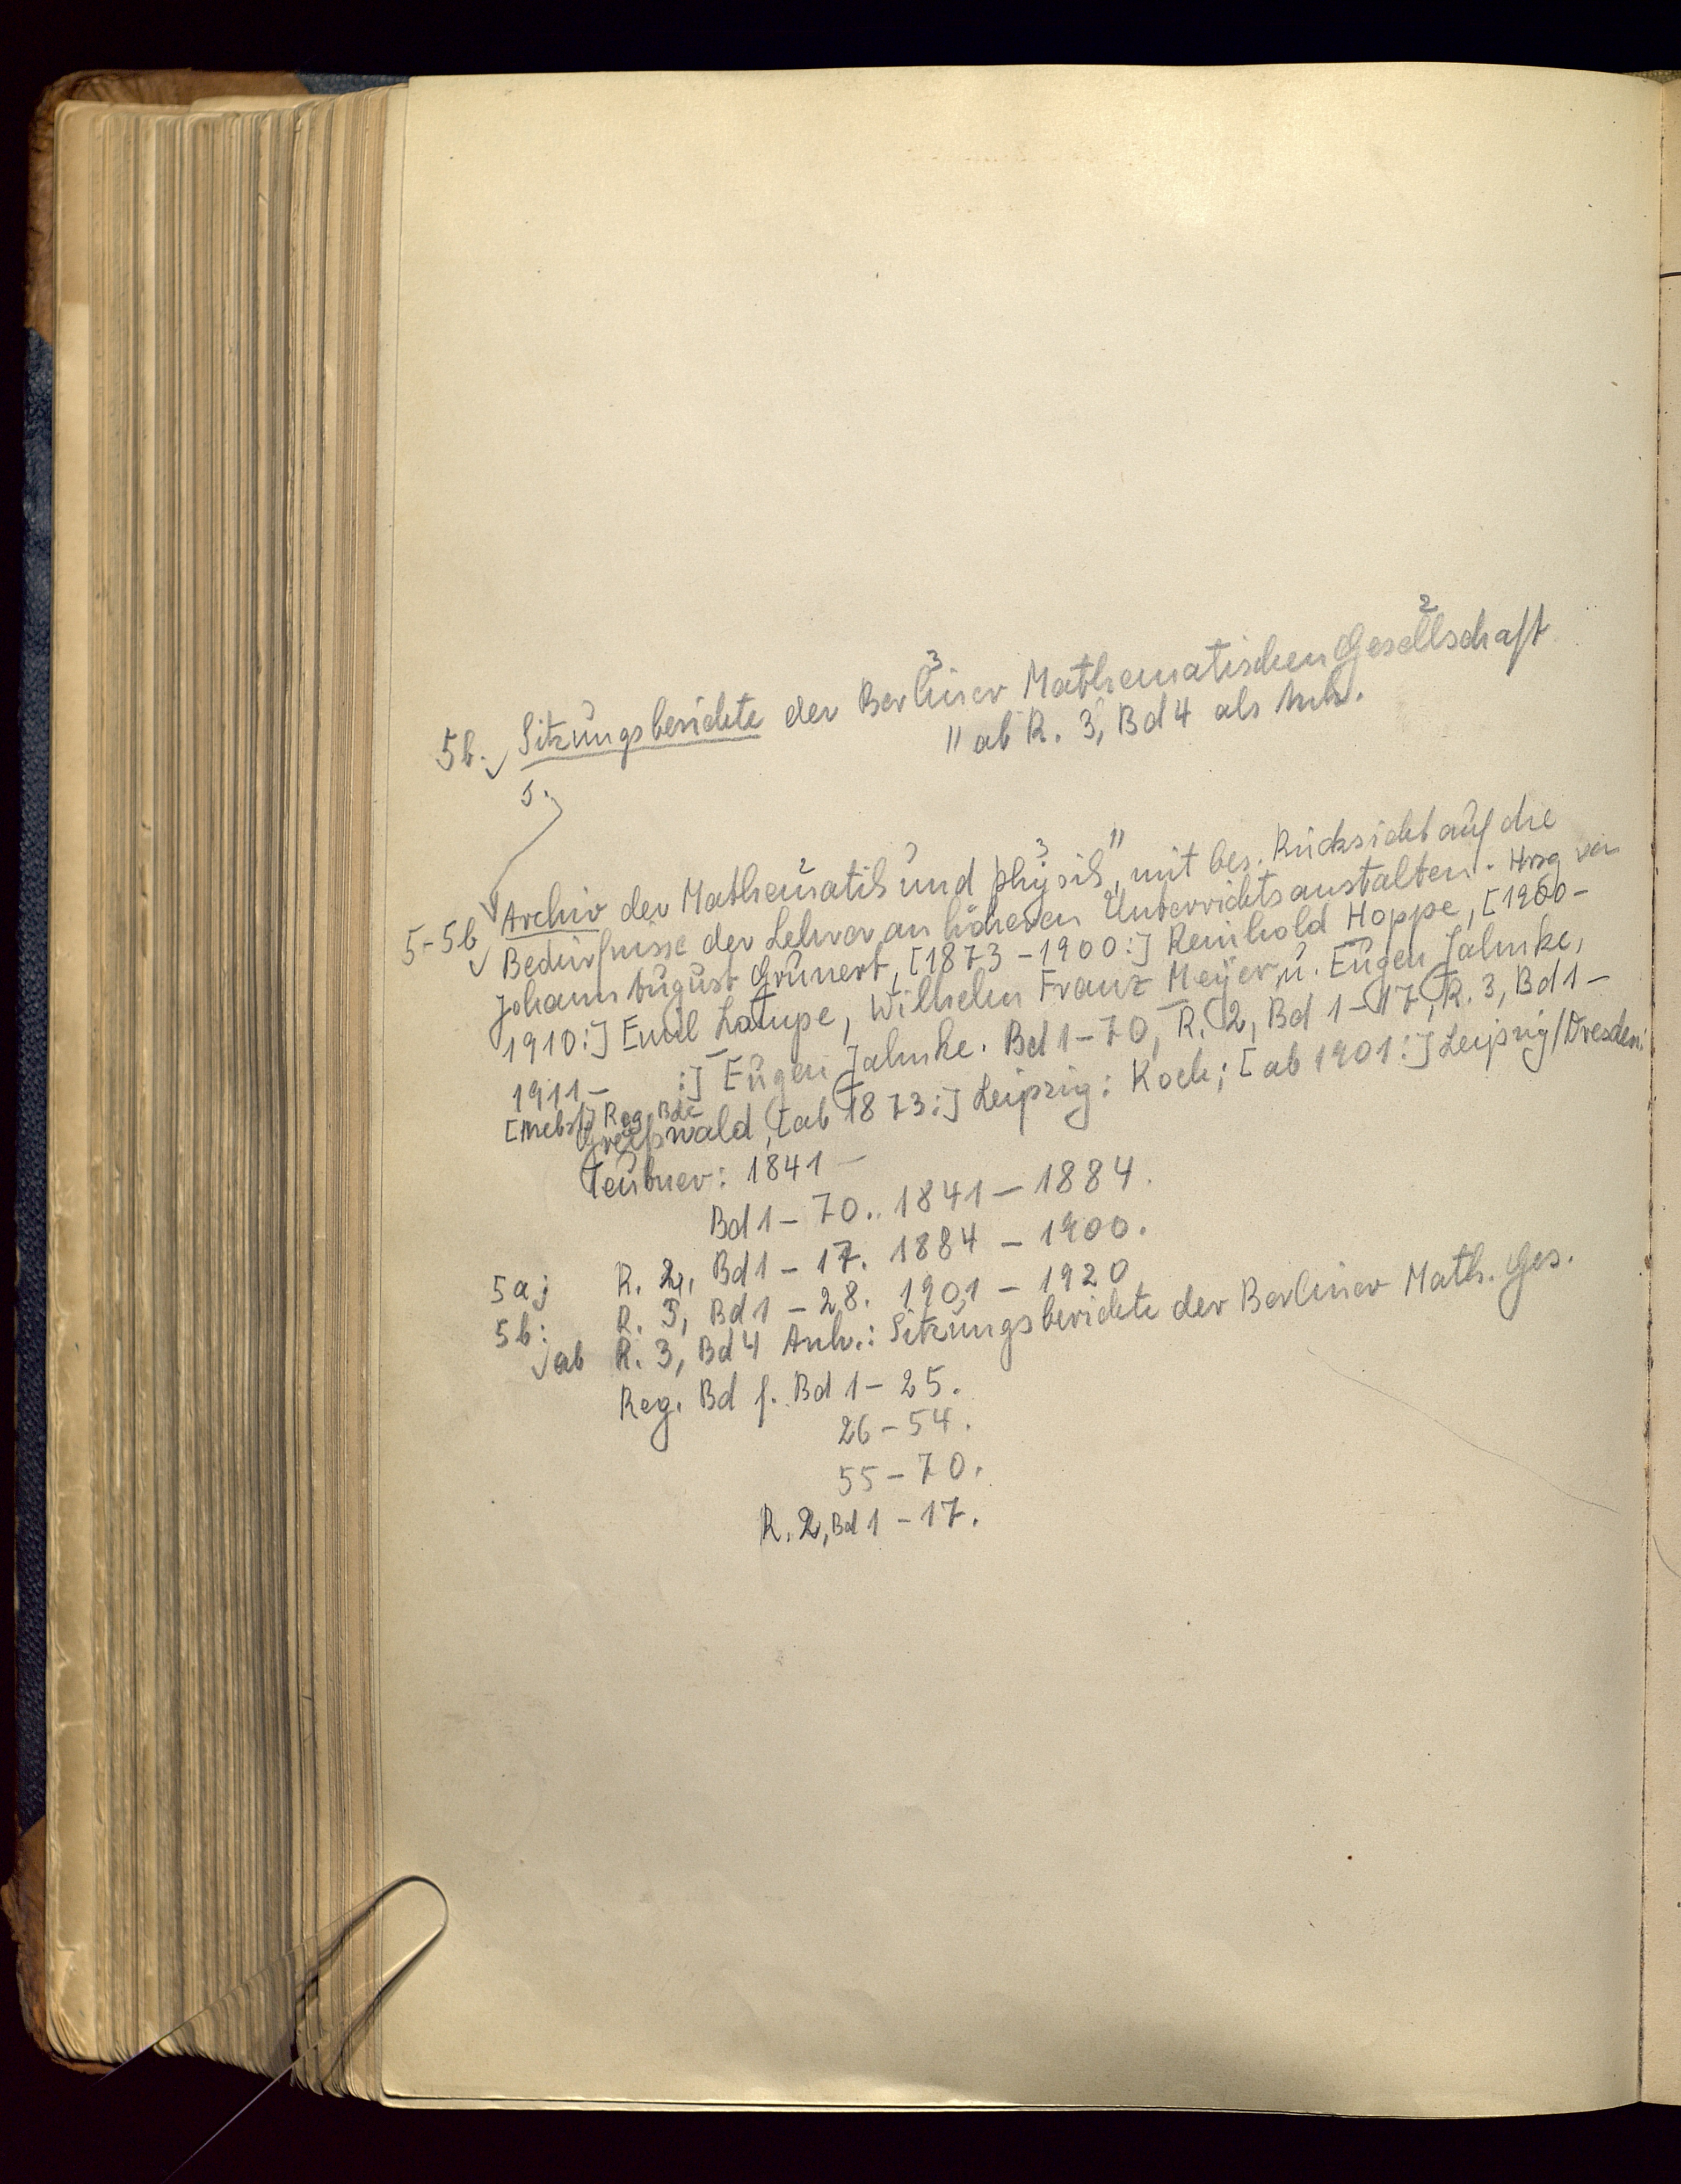 5b. Sitzungsberichte der Berliner Mathematischen Gesellschaft
3 2
" ab R. 3, Bd 4 als Anh.
5.
5-5b Archiv der Mathematik und Physik, mit bes. Rücksicht auf die
2 3 "
Bedürfnisse der Lehrer an höheren Unterrichtsanstalten. Hrsg von
Johann August Grunert, [1873-1900:] Reinhold Hoppe, [1900-
1910:] Emil Lampe, Wilhelm Franz Meyer, u. Eugen Jahnke,
1911- :] Eugen Jahnke. Bd 1-70, R. 2, Bd 1-17, R. 3, Bd 1-
[Nebst] Reg. Bde
Greifswald, [ab 1873:] Leipzig: Koch; [ab 1901:] Leipzig/Dresden:
Teubner: 1841-
Bd 1-70. 1841-1884.
5a: R. 2, Bd 1-17. 1884-1900.
5b: R. 3, Bd 1-28. 1901-1920
ab R. 3, Bd 4 Anh.: Sitzungsberichte der Berliner Math. Ges.
Reg. Bd f. Bd 1-25.
26-54.
55-70.
R. 2, Bd 1-17.